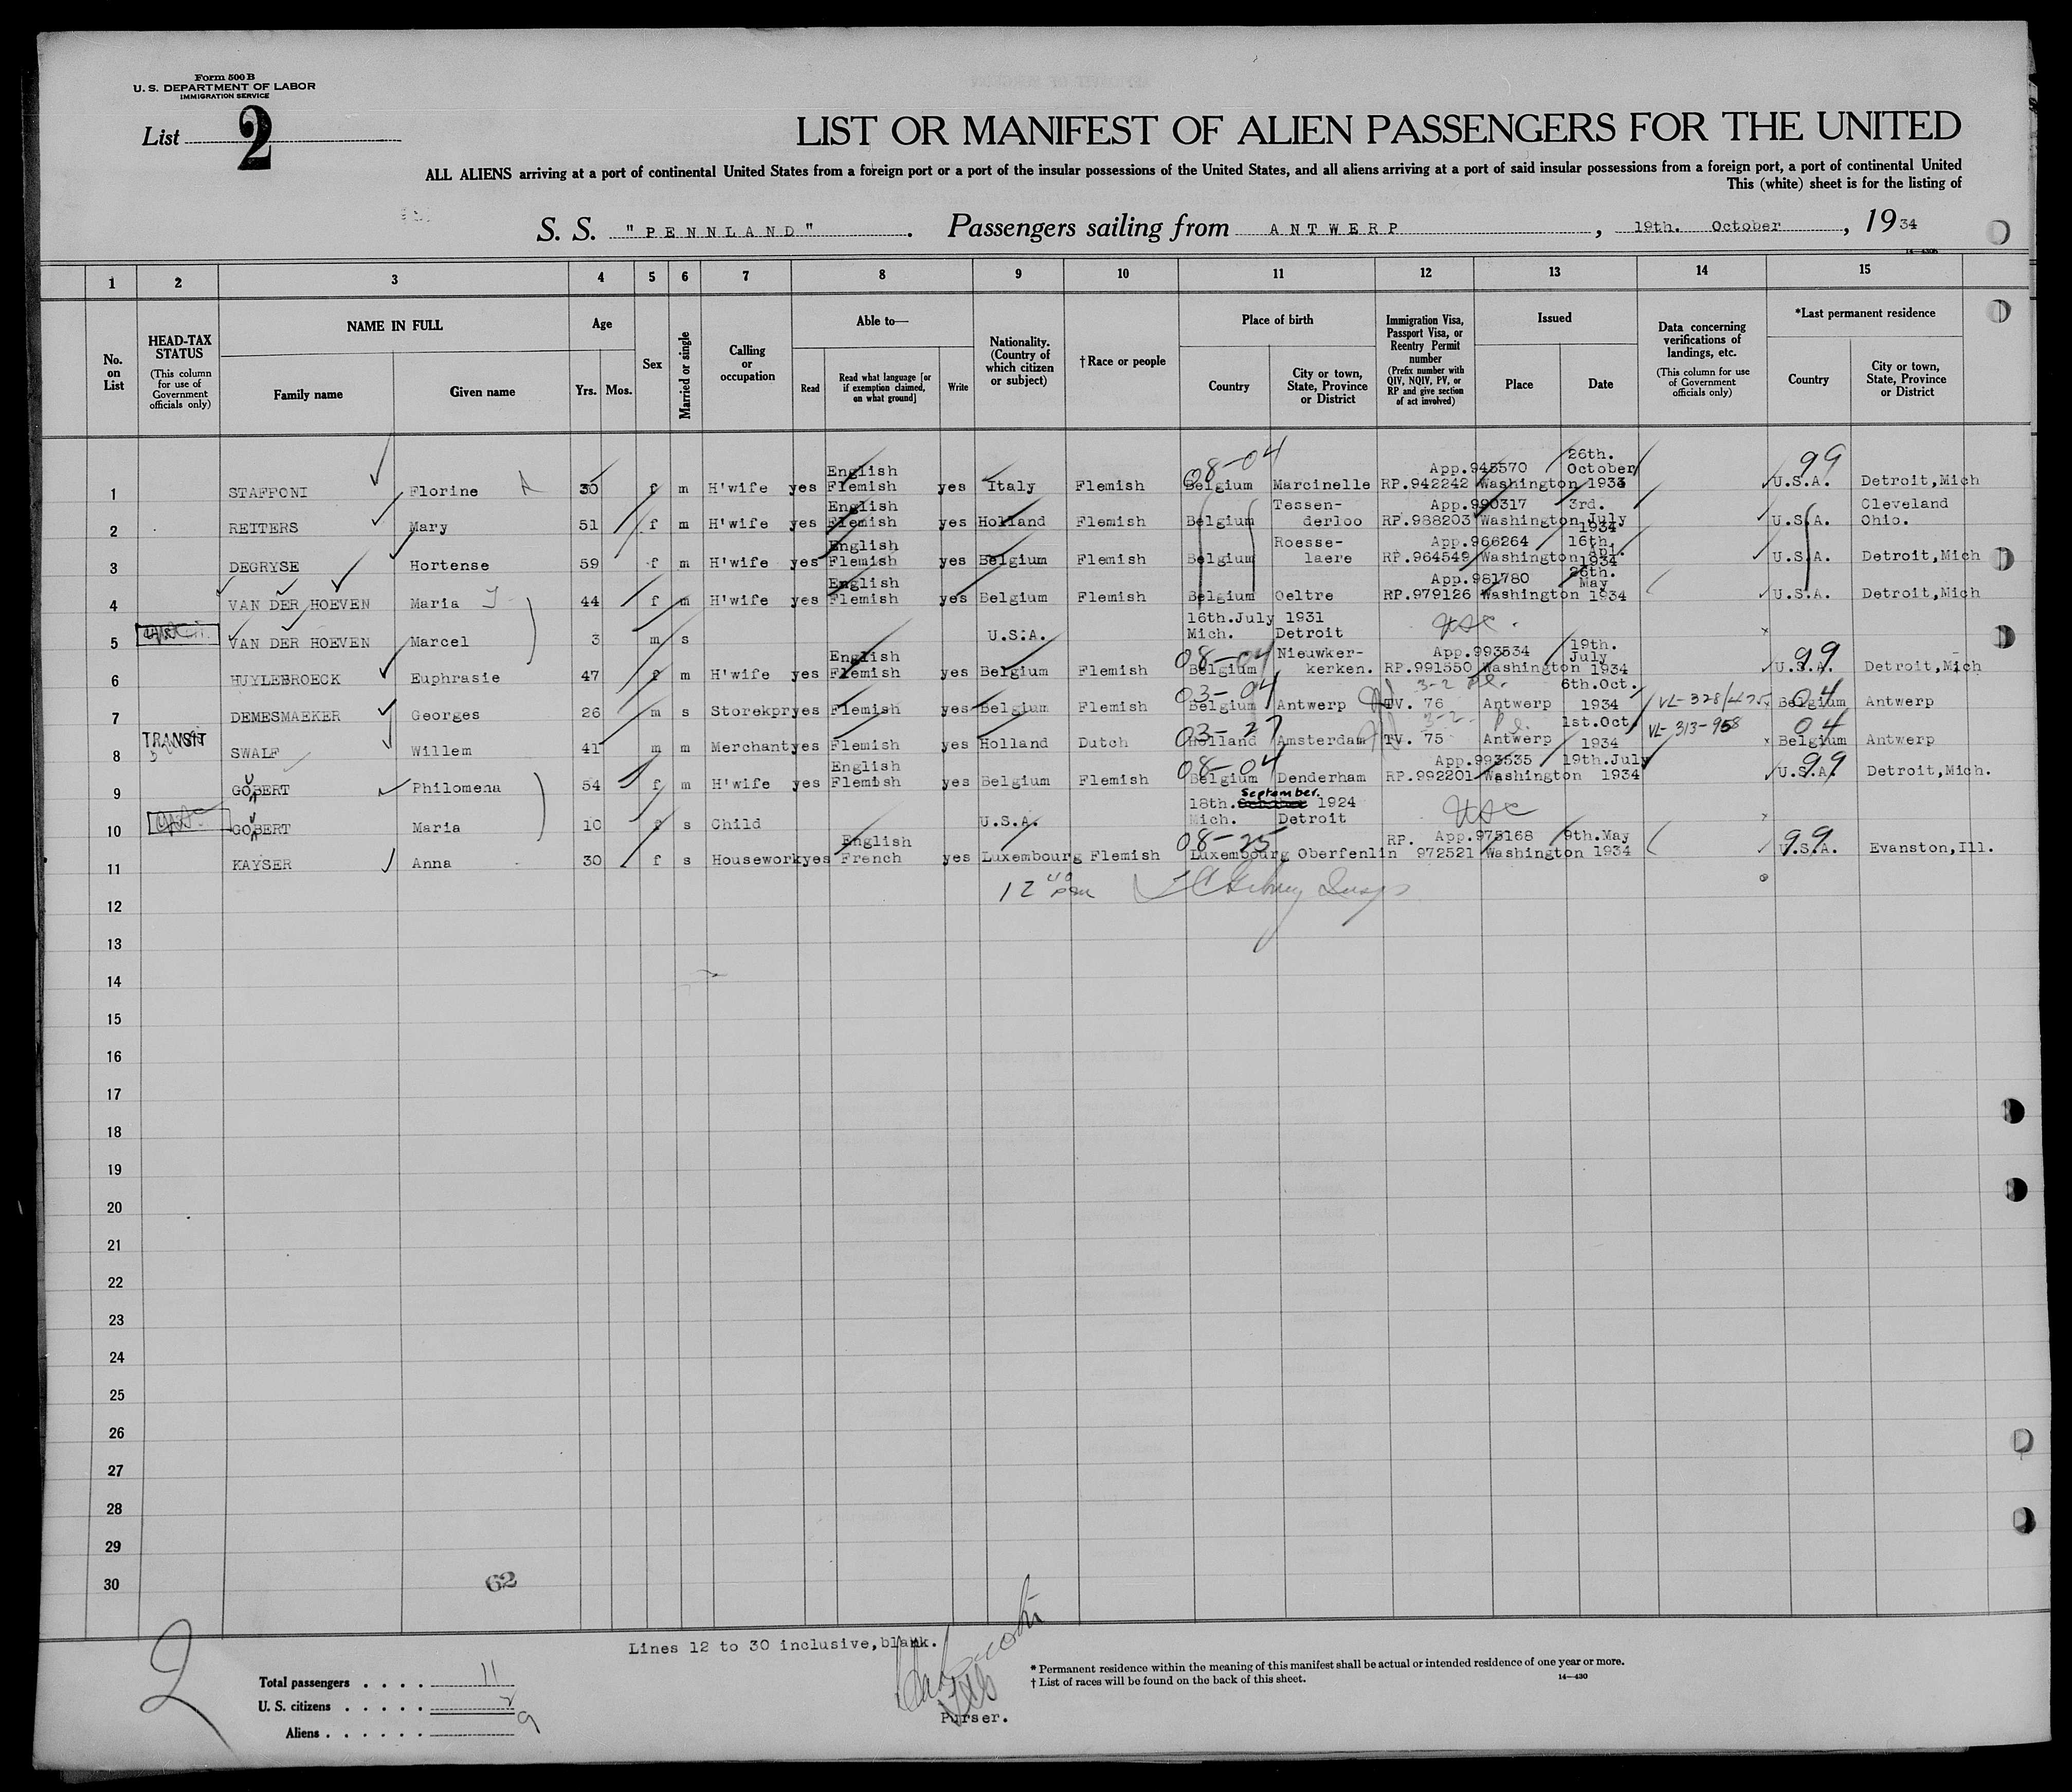 Form 500 B
U. S. DEPARTMENT OF LABOR
IMMIGRATION SERVICE
List 2
LIST OR MANIFEST OF ALIEN PASSENGERS FOR THE UNITED
ALL ALIENS arriving at a port of continental United States from a foreign port or a port of the insular possessions of the United States, and all aliens arriving at a port of said insular possessions from a foreign port, a port of continental United
This (white) sheet is for the listing of
S. S. "PENNLAND". Passengers sailing from ANTWERP, 19th. October, 1934
14—430B
1 2 3 4 5 6 7 8 9 10 11 12 13 14 15
No. on List
HEAD-TAX STATUS (This column for use of Government officials only)
NAME IN FULL Family name Given name
Age Yrs. Mos.
Sex
Married or single
Calling or occupation
Able to— Read Read what language [or if exemption claimed, on what ground] Write
Nationality. (Country of which citizen or subject)
†Race or people
Place of birth Country City or town, State, Province or District
Immigration Visa, Passport Visa, or Reentry Permit number (Prefix number with QIV, NQIV, PV, or RP and give section of act involved)
Issued Place Date
Data concerning verifications of landings, etc. (This column for use of Government officials only)
*Last permanent residence Country City or town, State, Province or District
1 STAFFONI Florine 30 f m H'wife yes English Flemish yes Italy Flemish 08-04 Belgium Marcinelle App.945570 RP.942242 Washington 26th. October 1933 99 U.S.A. Detroit,Mich
2 REITERS Mary 51 f m H'wife yes English Flemish yes Holland Flemish Belgium Tessen-derloo App.990317 RP.988203 Washington 3rd. July 1934 U.S.A. Cleveland Ohio.
3 DEGRYSE Hortense 59 f m H'wife yes English Flemish yes Belgium Flemish Belgium Roesse-laere App.966264 RP.964549 Washington 16th. Apl. 1934 U.S.A. Detroit,Mich
4 VAN DER HOEVEN Maria 44 f m H'wife yes English Flemish yes Belgium Flemish Belgium Oeltre App.981780 RP.979126 Washington 26th. May 1934 U.S.A. Detroit,Mich
5 VAN DER HOEVEN Marcel 3 m s U.S.A. 16th.July 1931 Mich. Detroit USC.
6 HUYLEBROECK Euphrasie 47 f m H'wife yes English Flemish yes Belgium Flemish 08-04 Belgium Nieuwker-kerken. App.993534 RP.991550 Washington 19th. July 1934 99 U.S.A. Detroit,Mich
7 DEMESMAEKER Georges 26 m s Storekpr yes Flemish yes Belgium Flemish 03-04 Belgium Antwerp 3-2 TV. 76 Antwerp 6th.Oct. 1934 VL-328/425 04 Belgium Antwerp
8 TRANSIT SWALF Willem 41 m m Merchant yes Flemish yes Holland Dutch 03-27 Holland Amsterdam 3-2 TV. 75 Antwerp 1st.Oct. 1934 VL-313-958 04 Belgium Antwerp
9 GOBERT Philomena 54 f m H'wife yes English Flemish yes Belgium Flemish 08-04 Belgium Denderham App.993535 RP.992201 Washington 19th.July 1934 99 U.S.A. Detroit,Mich.
10 GOBERT Maria 10 f s Child U.S.A. 18th. September. 1924 Mich. Detroit USC
11 KAYSER Anna 30 f s Housework yes English French yes Luxembourg Flemish 08-25 Luxembourg Oberfenlin RP. App.975168 972521 Washington 9th.May 1934 99 U.S.A. Evanston,Ill.
12
13
14
15
16
17
18
19
20
21
22
23
24
25
26
27
28
29
30
62
2
Lines 12 to 30 inclusive,blank.
Total passengers . . . . 11
U. S. citizens . . . . . 2
Aliens . . . . . . 9
Purser.
* Permanent residence within the meaning of this manifest shall be actual or intended residence of one year or more.
† List of races will be found on the back of this sheet.
14—430